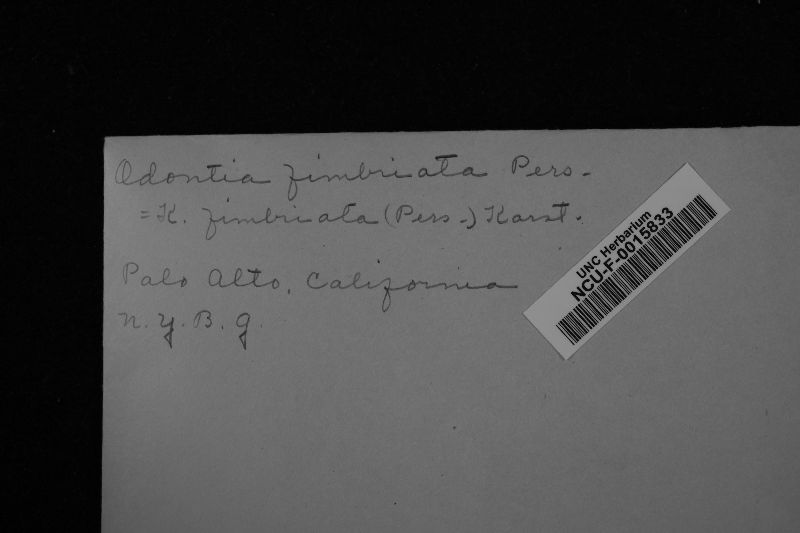 Odontia fimbriata Pers.
= K. fimbriata (Pers.) Karst.
Palo Alto, California
N. Y. B. G.
UNC Herbarium
NCU-F-0015833